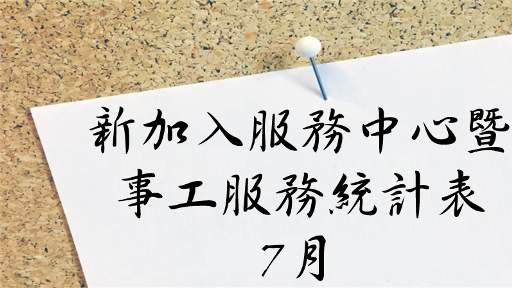 新加入服務中心暨
事工服務統計表
7月